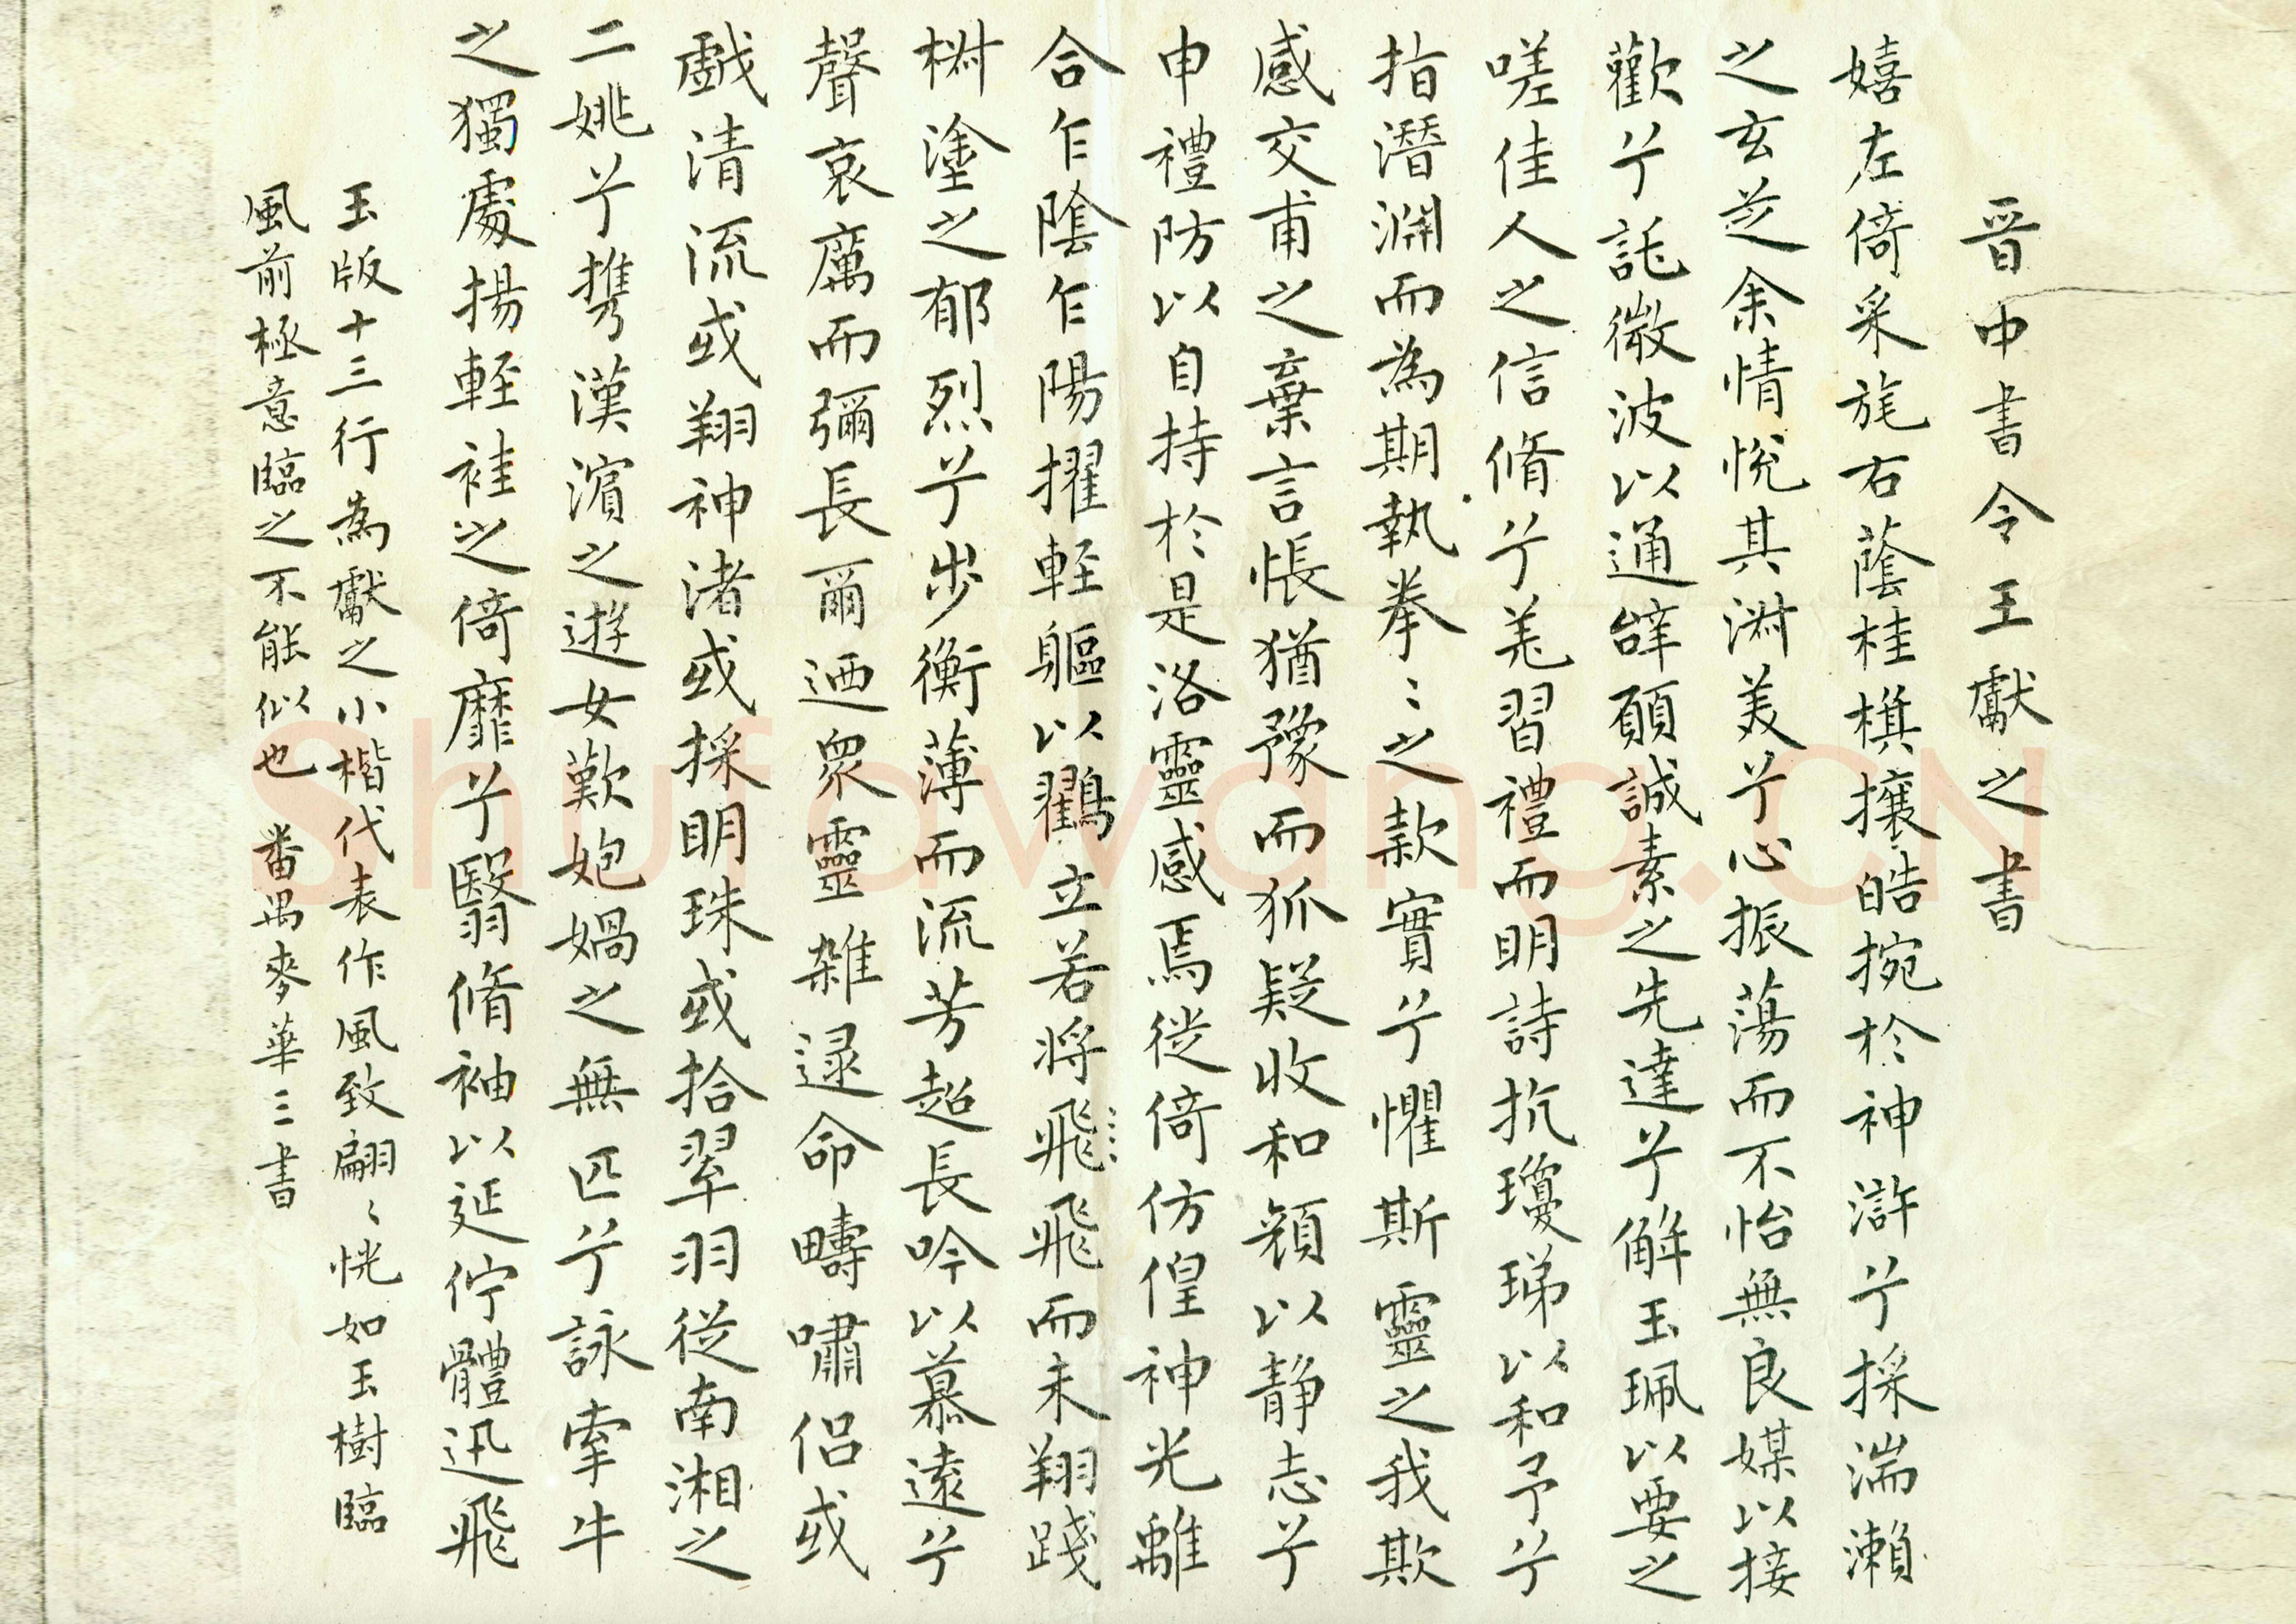 晉中書令王獻之書
嬉左倚采旄右蔭桂棋攘皓捥於神滸兮採湍瀨
之玄芝余情悅其淑美兮心振蕩而不怡無良媒以接
歡兮託微波以通辝願誠素之先達兮解玉珮以要之
嗟佳人之信脩兮羌習禮而明詩抗瓊珶以和予兮
指潛淵而為期執拳〻之款實兮懼斯靈之我欺
感交甫之棄言悵猶豫而狐疑收和顏以静志兮
申禮防以自持於是洛靈感焉徙倚仿偟神光離
合乍陰乍陽擢軽軀以鸖立若將飛飛而未翔踐
椒塗之郁烈兮步衡薄而流芳超長吟以慕遠兮
聲哀厲而彌長爾迺衆靈雜逯命疇嘯侶或
戲清流或翔神渚或採明珠或拾翠羽從南湘之
二姚兮携漢濱之遊女歎匏媧之無匹兮詠牽牛
之獨處揚軽袿之倚靡兮翳脩袖以延佇體迅飛
玉版十三行為獻之小楷代表作風致翩〻恍如玉樹臨
風前極意臨之不能似也 番禺麥華三書
Shufawang.CN